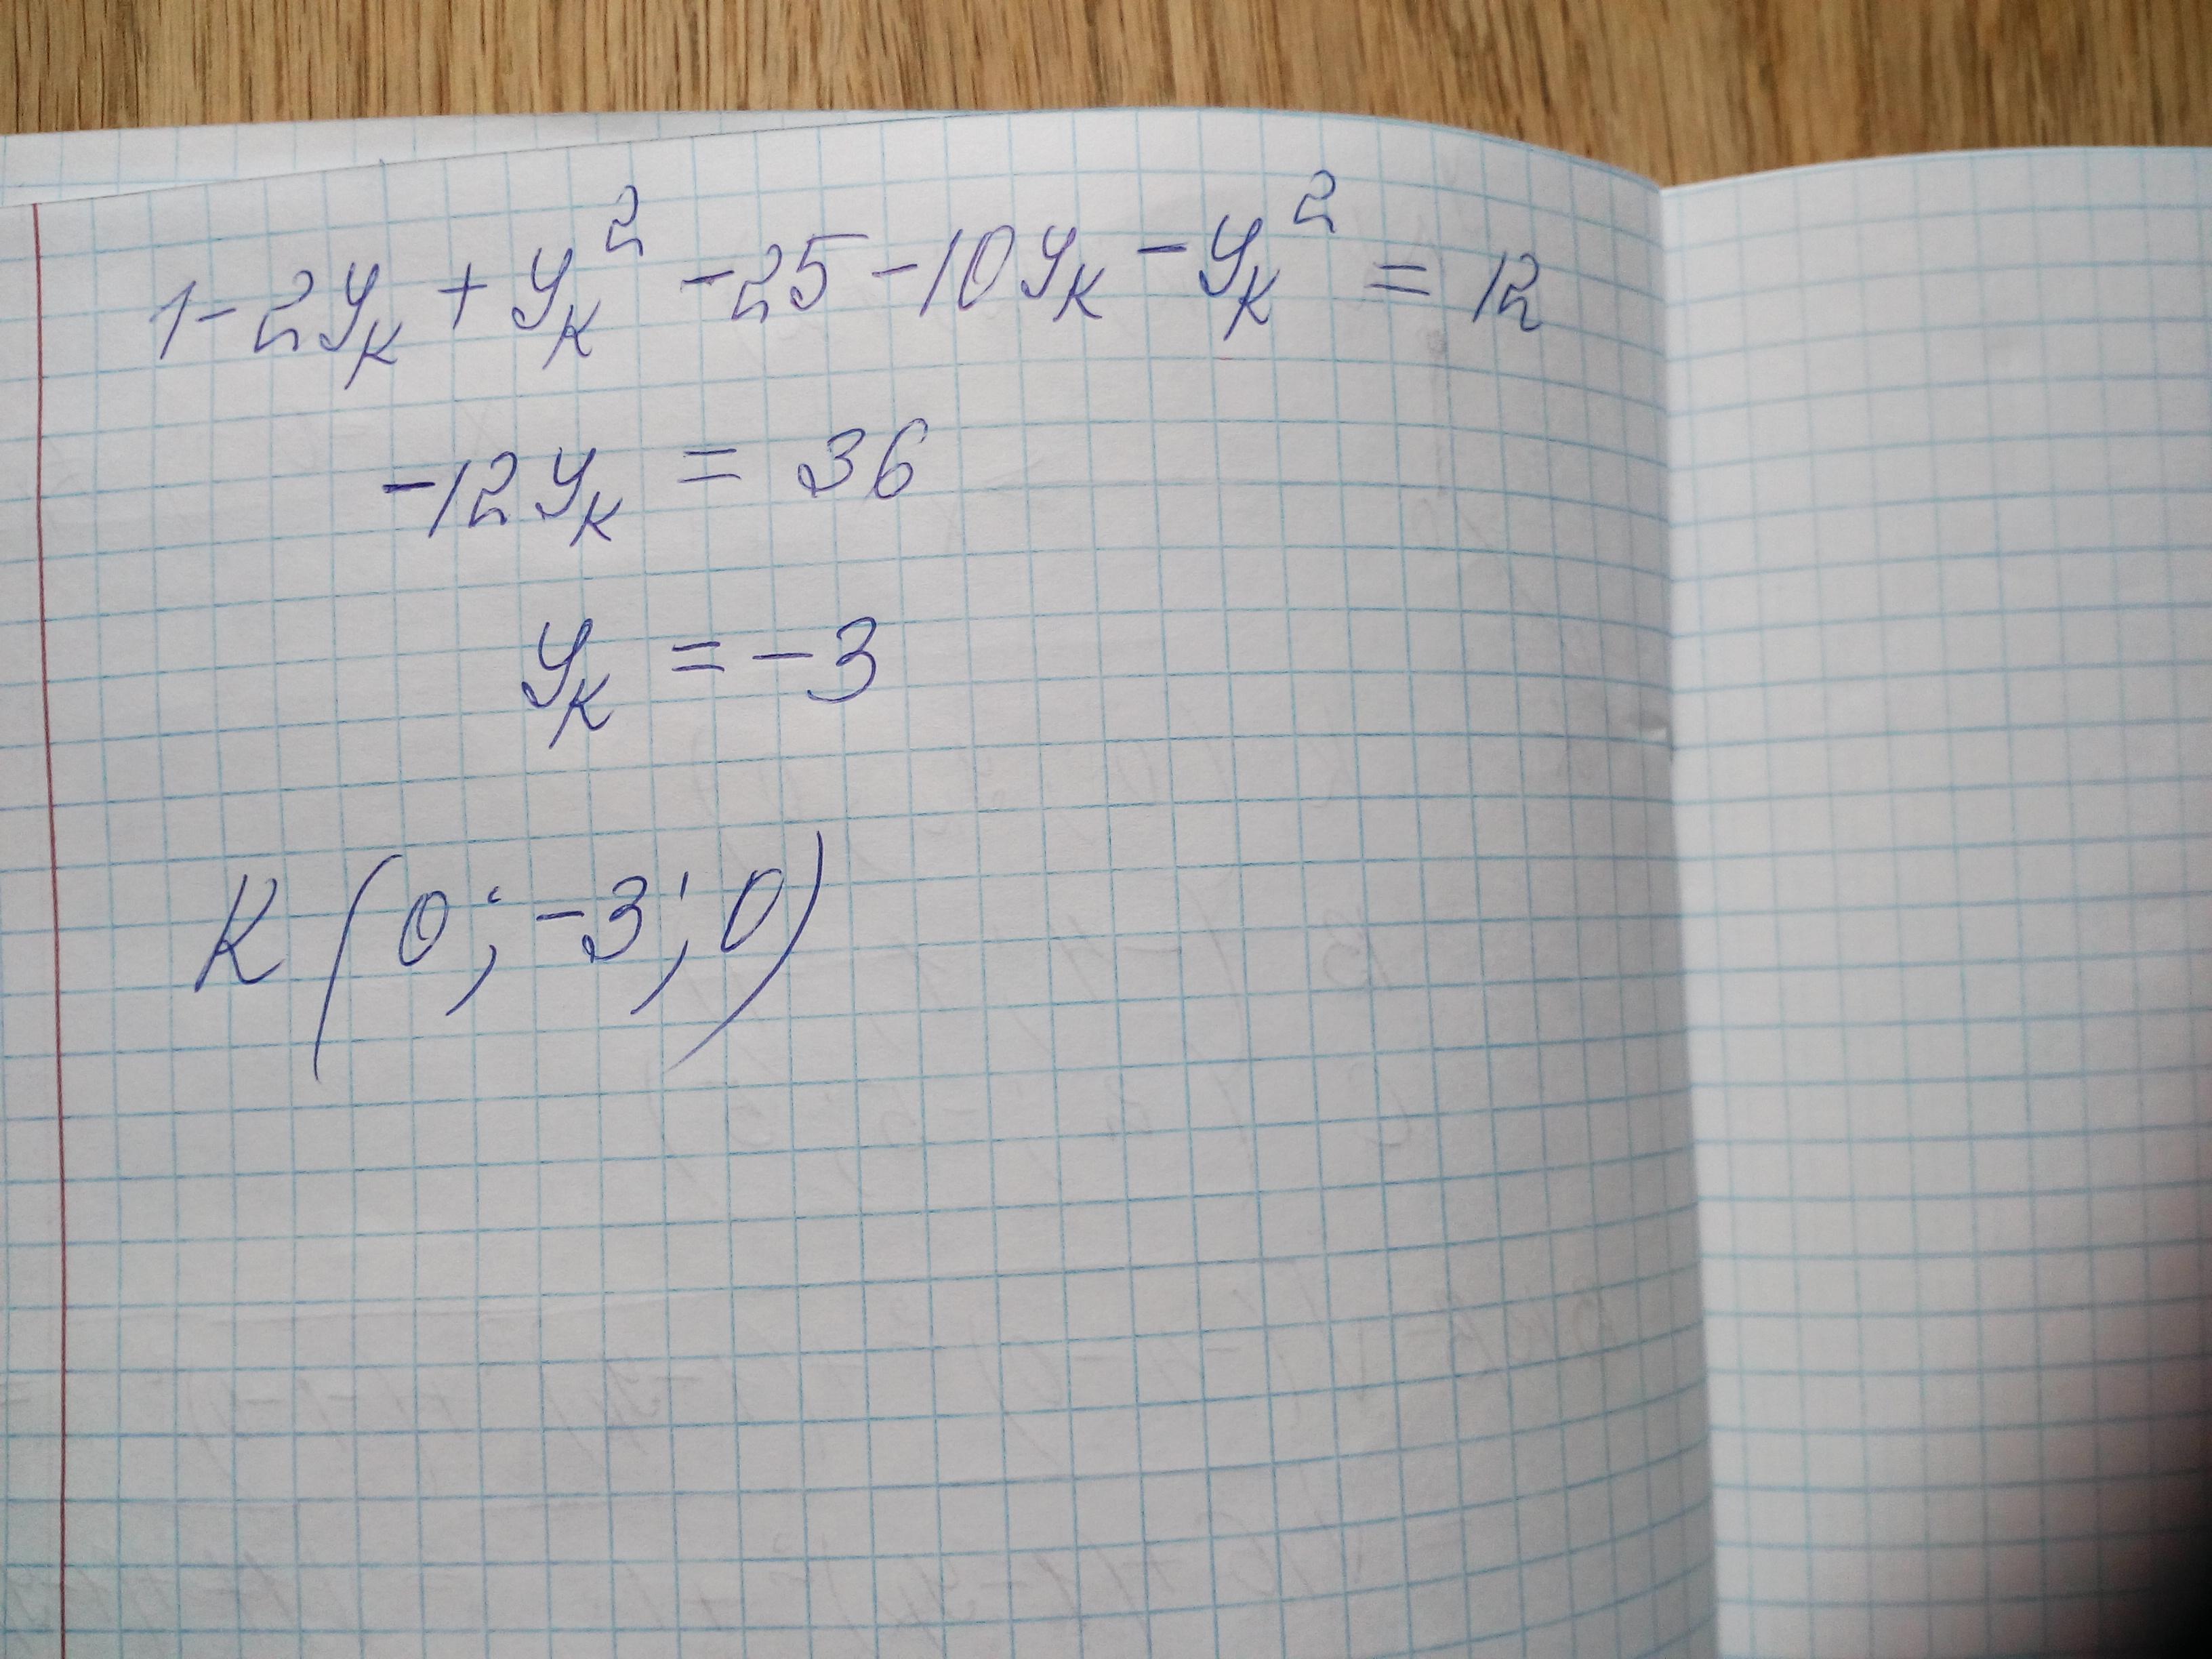 1-2y_K + y_K² -25-10y_K - y_K² = 12
-12y_K = 36
y_K = -3
K (0; -3; 0)